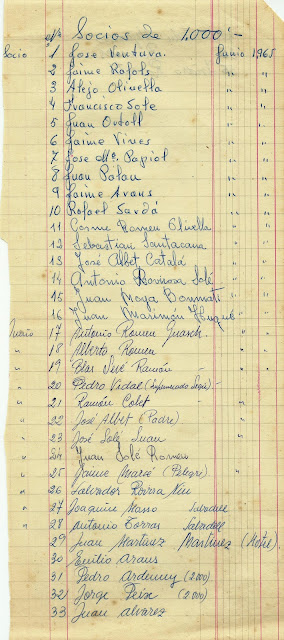 nº Socios de 1.000'-
Socio 1 Jose Ventura. Junio 1965
2 Jaime Rafols " "
3 Alejo Olivella " "
4 Francisco Sole " "
5 Juan Ortoll " "
6 Jaime Vines " "
7 Jose Mª. Papiol " "
8 Juan Palau " "
9 Jaime Arans " "
10 Rafael Sardá " "
11 Cosme Romeu Olivella "
12 Sebastian Santacana "
13 José Albet Catalá "
14 Antonio Romeu Solé "
15 Juan Moya Bonmati "
16 Juan Marimon "
Junio 17 Antonio Romeu Guasch. "
" 18 Alberto Romeu "
" 19 Blas Ramón "
" 20 Pedro Vidal -
" 21 Ramón Colet "
" 22 José Albet (Padre) "
" 23 José Solé Juan "
" 24 Juan Solé Romeu
" 25 Jaime Marcé "
" 26 Salvador
" 27 Joaquin Masso
" 28 Antonio Torras Sabadell
29 Juan Martinez Martinez
30 Emilio Arans
31 Pedro Ardenuy (2.000)
32 Jorge Peix (2.000)
33 Juan alvarez